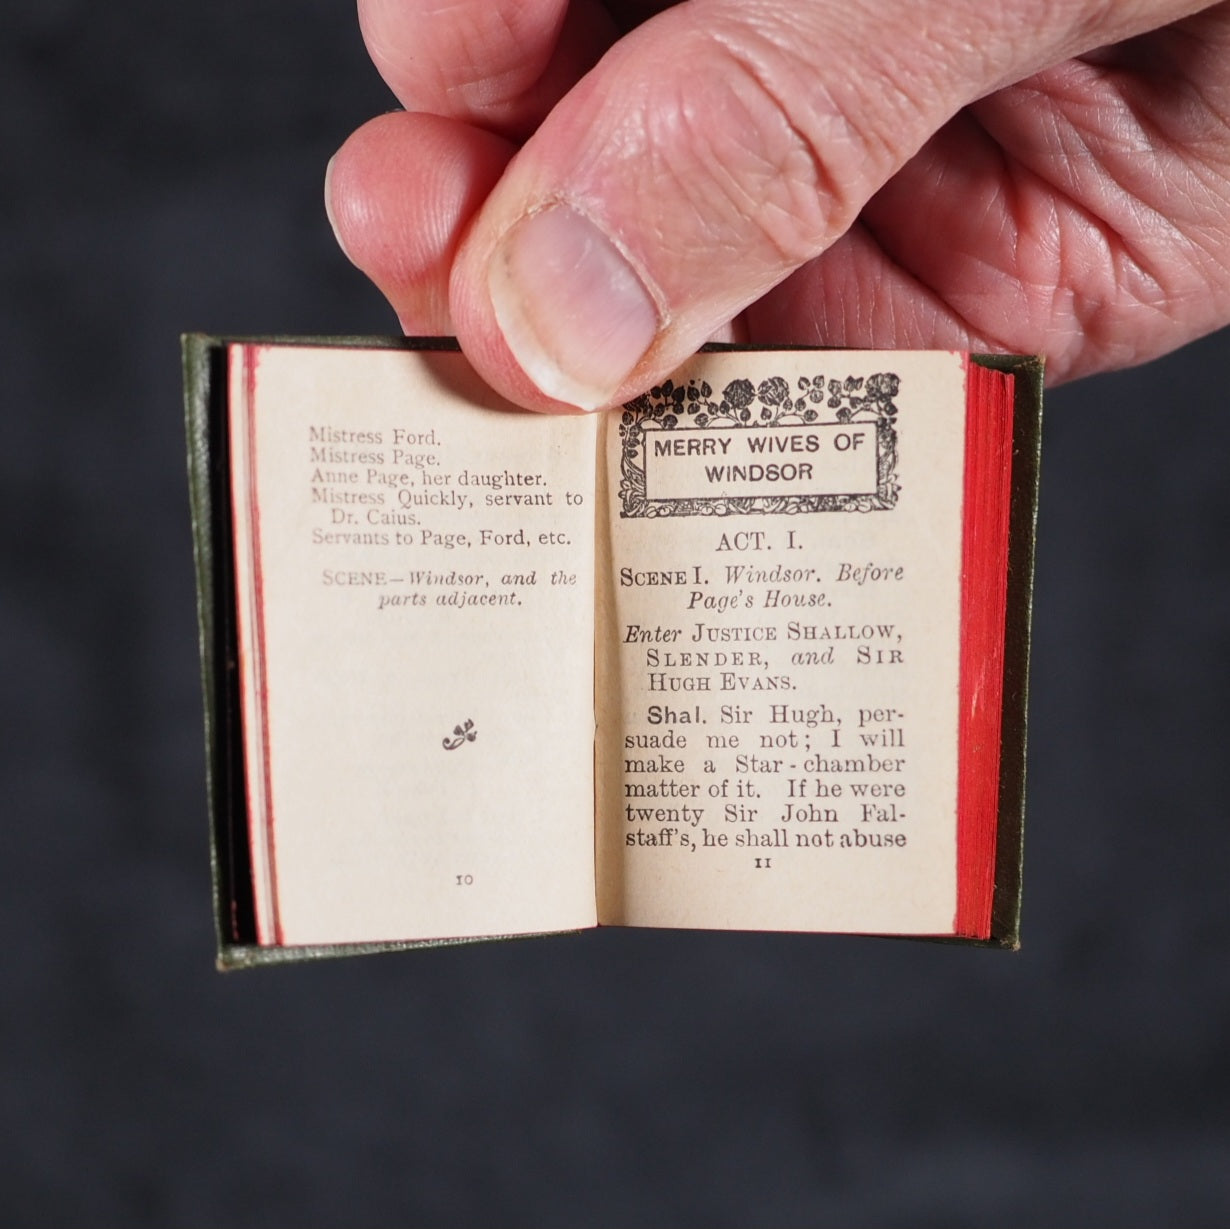 Mistress Ford.
Mistress Page.
Anne Page, her daughter.
Mistress Quickly, servant to
Dr. Caius.
Servants to Page, Ford, etc.
SCENE—Windsor, and the
parts adjacent.
10
MERRY WIVES OF
WINDSOR
ACT. I.
SCENE I. Windsor. Before
Page's House.
Enter JUSTICE SHALLOW,
SLENDER, and SIR
HUGH EVANS.
Shal. Sir Hugh, per-
suade me not; I will
make a Star-chamber
matter of it. If he were
twenty Sir John Fal-
staff's, he shall not abuse
11